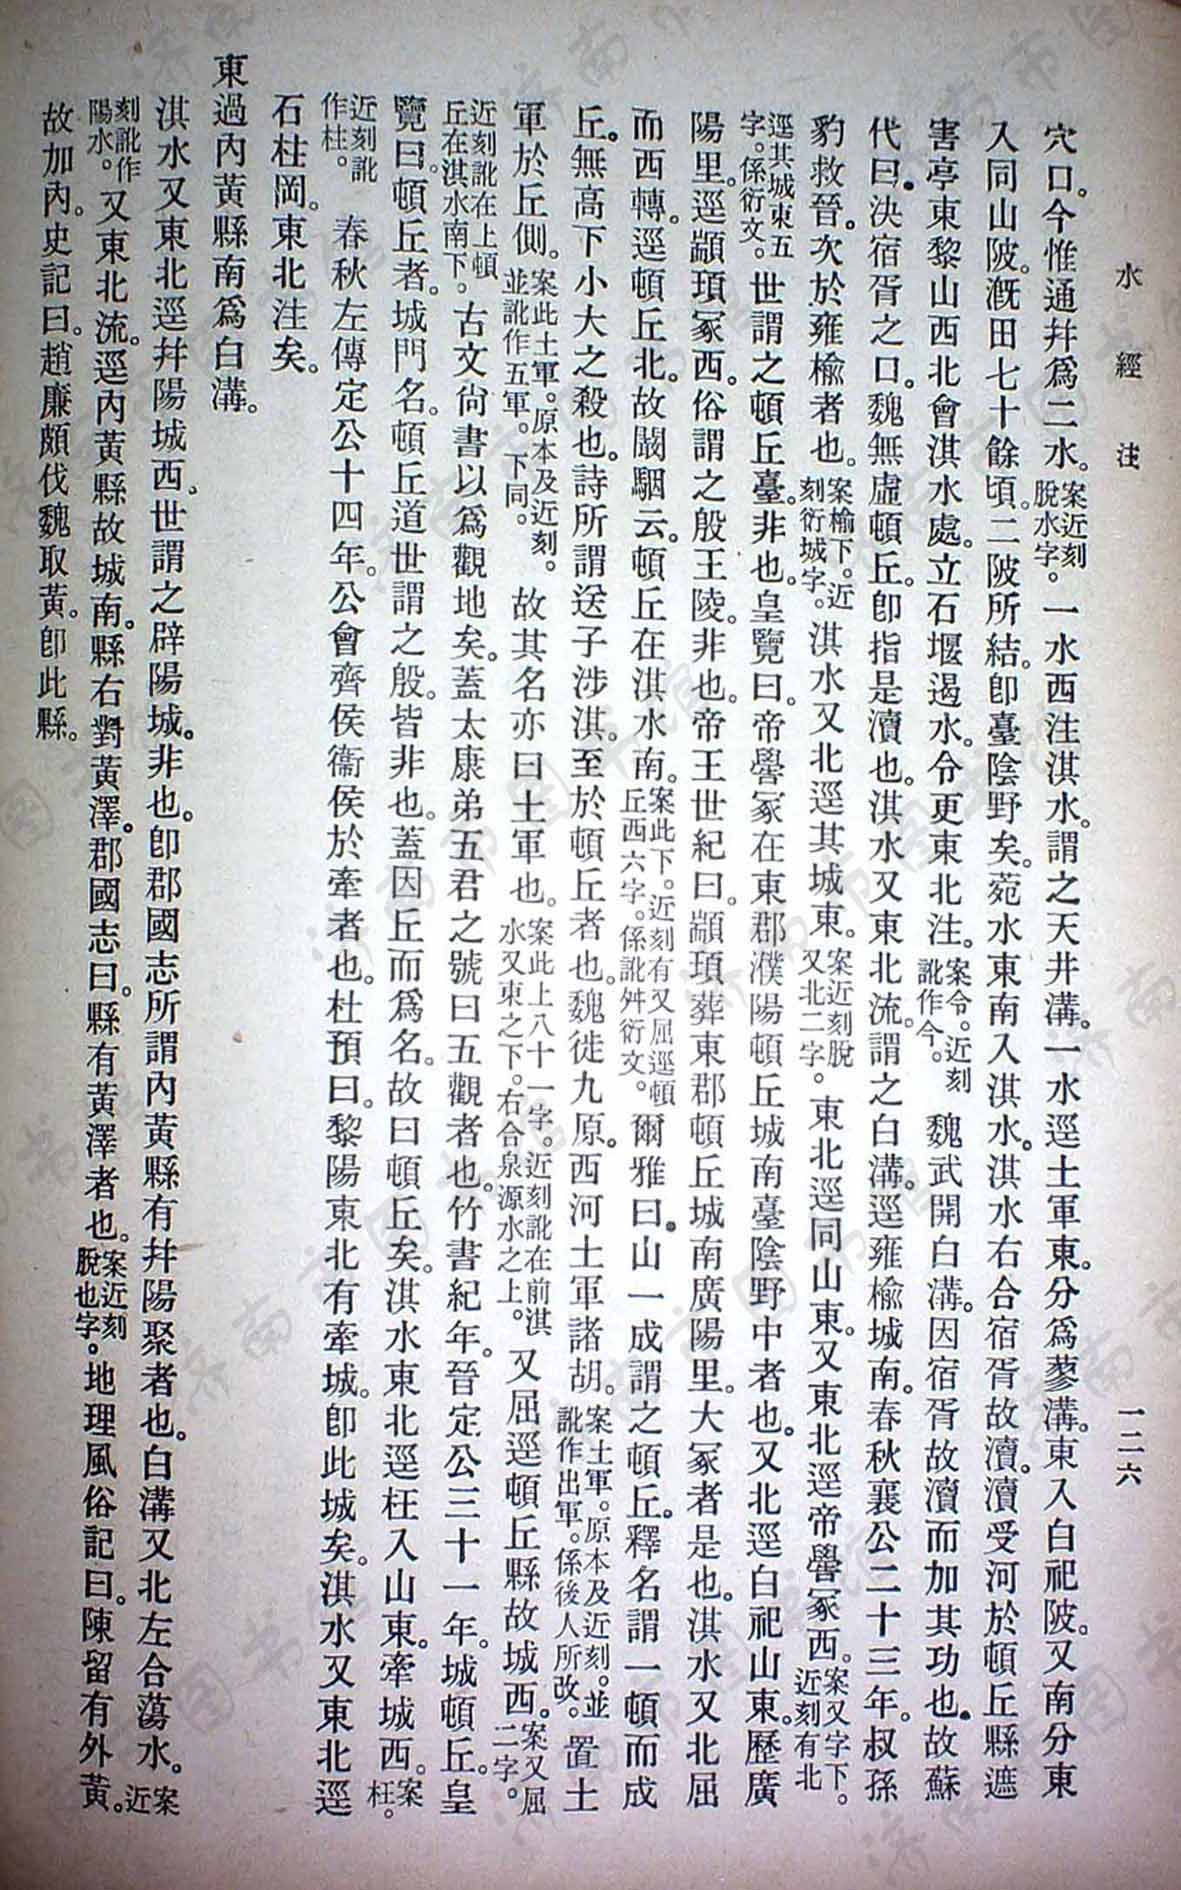 水經注 一二六
穴口。今惟通幷爲二水。案近刻脫水字。一水西注淇水。謂之天井溝。一水逕土軍東。分爲蓼溝。東入白祀陂。又南分東
入同山陂。漑田七十餘頃。二陂所結。卽臺陰野矣。菀水東南入淇水。淇水右合宿胥故瀆。瀆受河於頓丘縣遮
害亭東黎山西北會淇水處。立石堰遏水。令更東北注。案令。近刻訛作今。魏武開白溝。因宿胥故瀆而加其功也。故蘇
代曰。決宿胥之口。魏無虛頓丘。卽指是瀆也。淇水又東北流。謂之白溝。逕雍榆城南。春秋襄公二十三年。叔孫
豹救晉。次於雍榆者也。案榆下。近刻衍城字。淇水又北逕其城東。案近刻脫又北二字。東北逕同山東。又東北逕帝嚳冢西。案又字下。近刻有北
逕其城東五字。係衍文。世謂之頓丘臺。非也。皇覽曰。帝嚳冢在東郡濮陽頓丘城南臺陰野中者也。又北逕白祀山東。歷廣
陽里。逕顓頊冢西。俗謂之殷王陵。非也。帝王世紀曰。顓頊葬東郡頓丘城南廣陽里。大冢者是也。淇水又北屈
而西轉。逕頓丘北。故闞駰云。頓丘在淇水南。案此下。近刻有又屈逕頓丘西六字。係訛舛衍文。爾雅曰。山一成謂之頓丘。釋名謂一頓而成
丘。無高下小大之殺也。詩所謂送子涉淇。至於頓丘者也。魏徙九原。西河土軍諸胡。案土軍。原本及近刻。並訛作出軍。係後人所改。置土
軍於丘側。案此土軍。原本及近刻。並訛作五軍。下同。故其名亦曰土軍也。案此上八十一字。近刻訛在前淇水又東之下。右合泉源水之上。又屈逕頓丘縣故城西。案又屈二字。
近刻訛在上頓丘在淇水南下。古文尙書以爲觀地矣。蓋太康弟五君之號曰五觀者也。竹書紀年。晉定公三十一年。城頓丘。皇
覽曰。頓丘者。城門名。頓丘道世謂之殷。皆非也。蓋因丘而爲名。故曰頓丘矣。淇水東北逕枉入山東。牽城西。案枉。
近刻訛作柱。春秋左傳定公十四年。公會齊侯衞侯於牽者也。杜預曰。黎陽東北有牽城。卽此城矣。淇水又東北逕
石柱岡。東北注矣。
東過內黃縣南爲白溝。
淇水又東北逕幷陽城西。世謂之辟陽城。非也。卽郡國志所謂內黃縣有幷陽聚者也。白溝又北左合蕩水。案近
刻訛作陽水。又東北流。逕內黃縣故城南。縣右對黃澤。郡國志曰。縣有黃澤者也。案近刻脫也字。地理風俗記曰。陳留有外黃。
故加內。史記曰。趙廉頗伐魏取黃。卽此縣。